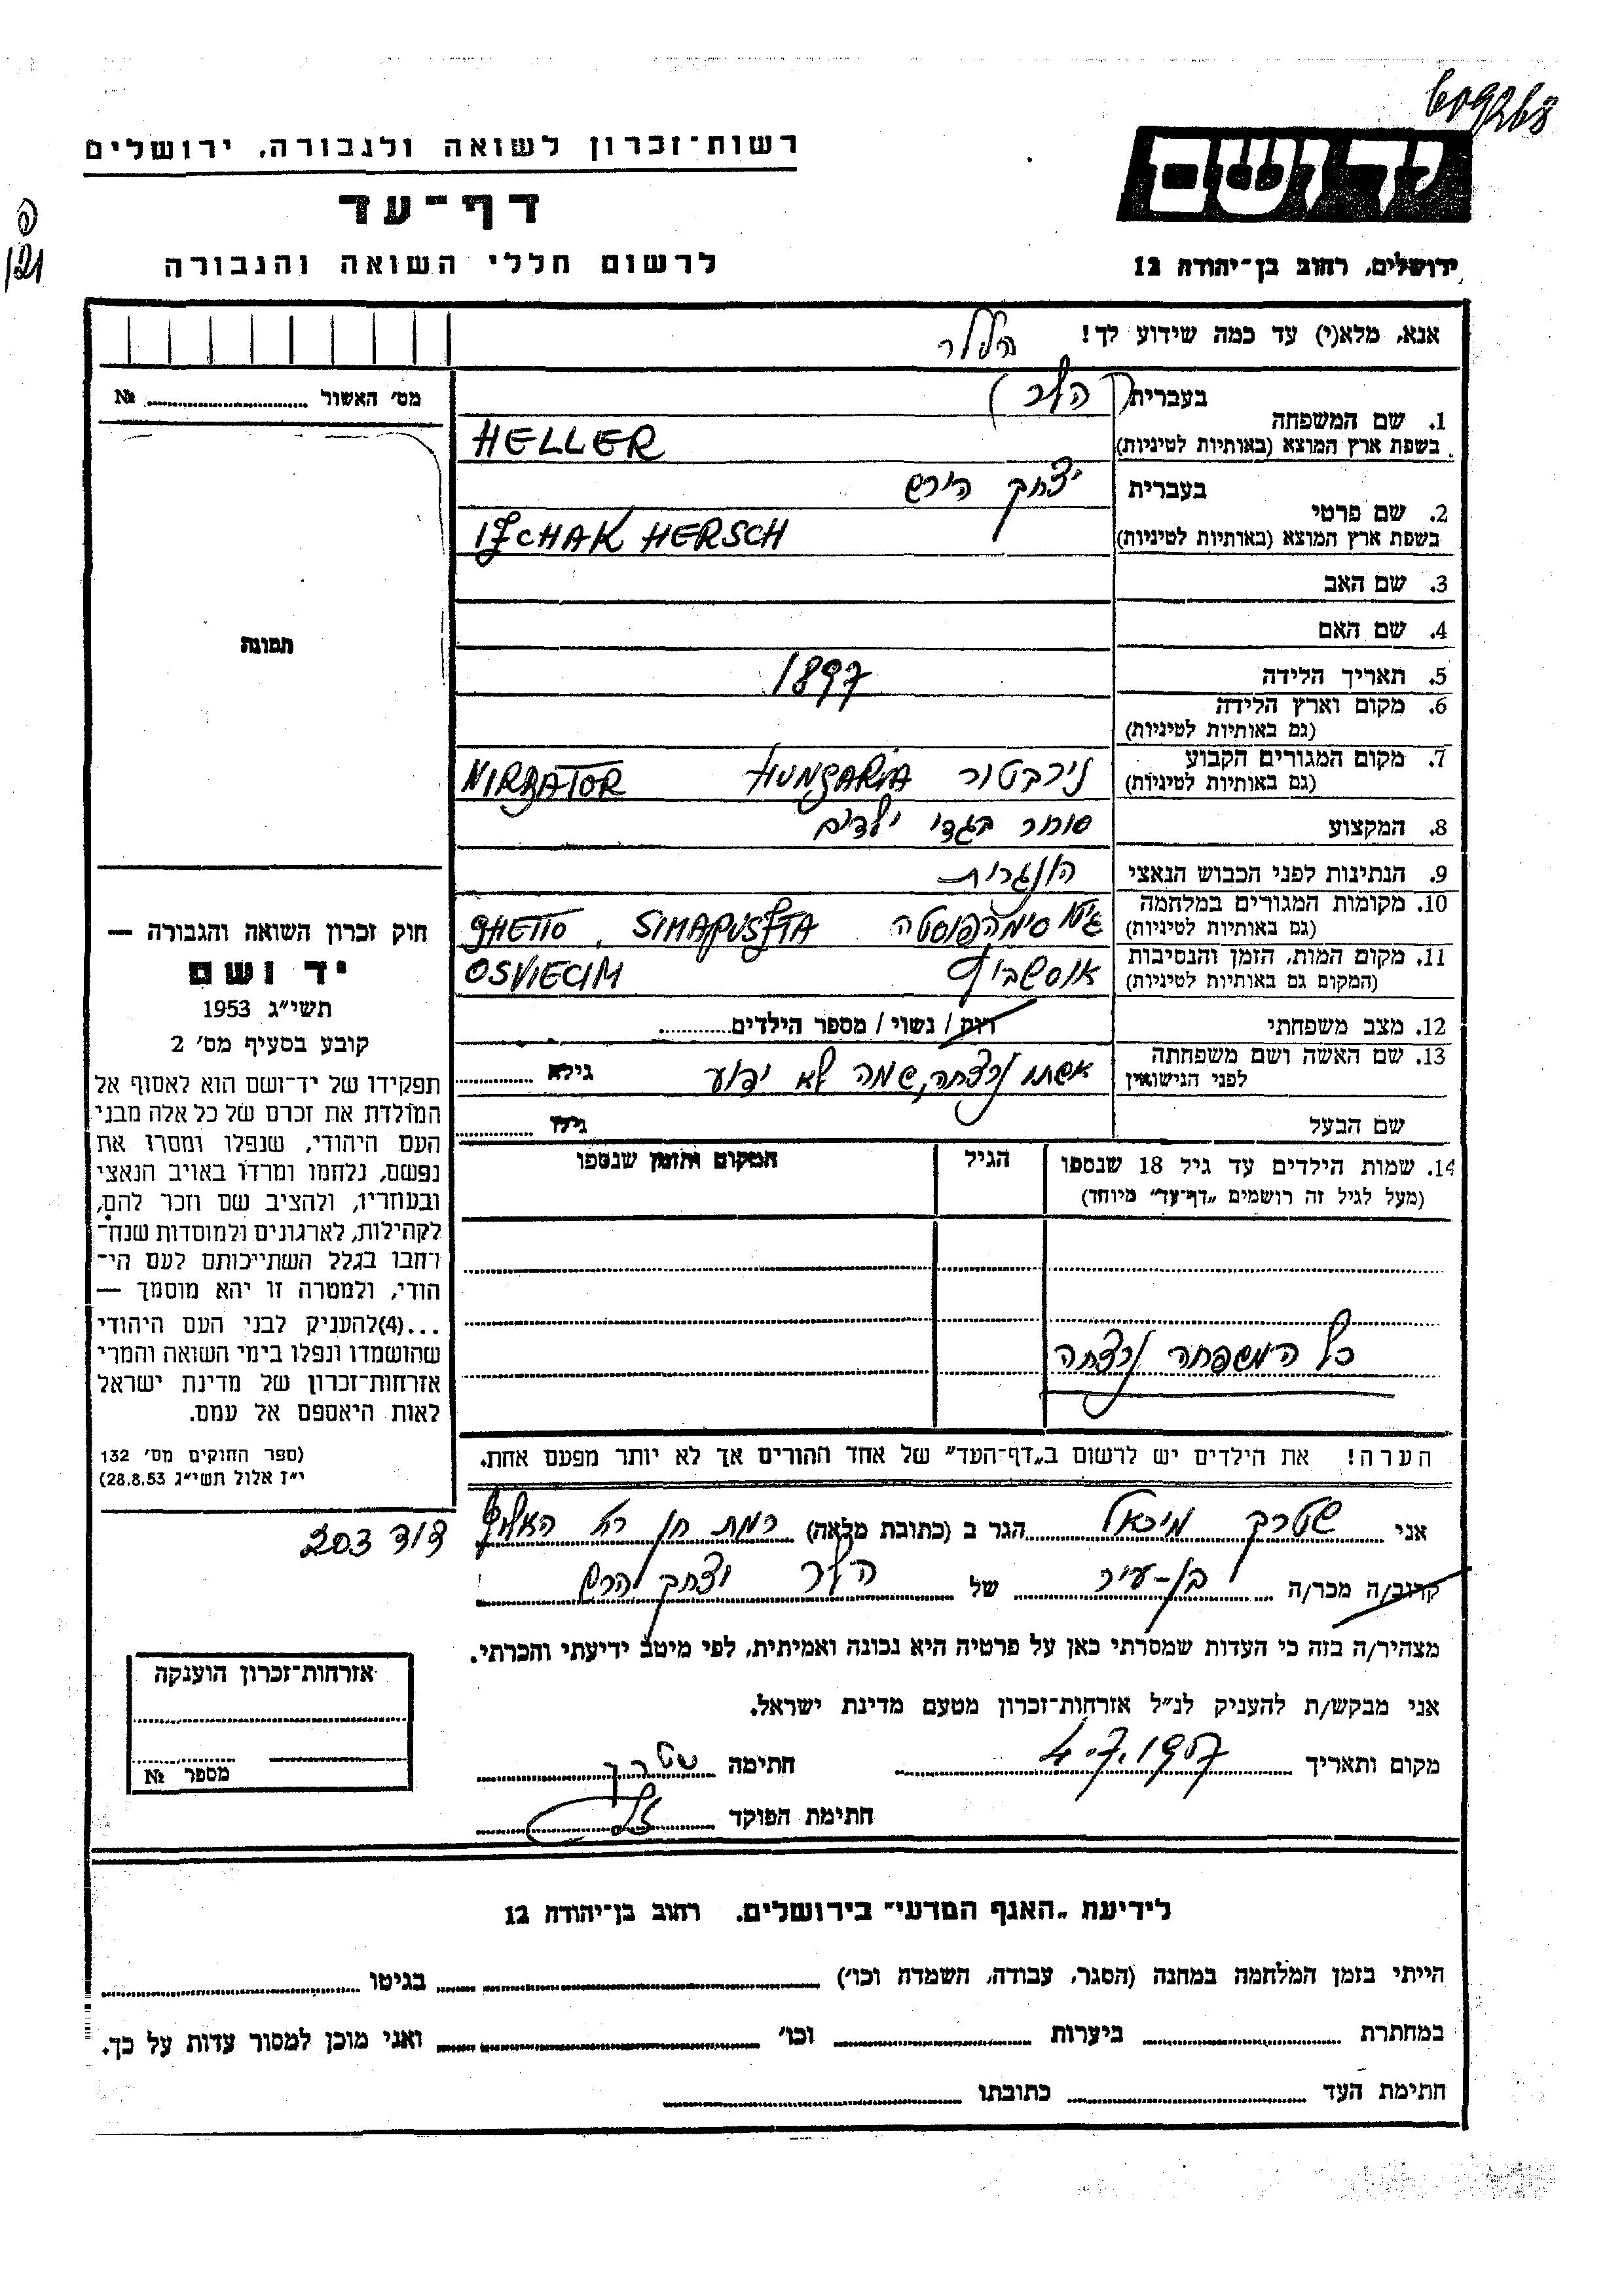 609268
רשות־זכרון לשואה ולגבורה, ירושלים
יד ושם
דף־עד
ה
121
לרשום חללי השואה והגבורה
ירושלים, רחוב בן־יהודה 12
אנא, מלא(י) עד כמה שידוע לך!
הללר
מס׳ האשור № 
1. שם המשפחה
בעברית (הלר)
בשפת ארץ המוצא (באותיות לטיניות) HELLER
2. שם פרטי
בעברית יצחק הירש
בשפת ארץ המוצא (באותיות לטיניות) IZCHAK HERSCH
3. שם האב
4. שם האם
תמונה
5. תאריך הלידה 1897
6. מקום וארץ הלידה
(גם באותיות לטיניות)
7. מקום המגורים הקבוע
(גם באותיות לטיניות) נירבטור HUNGARIA NIRBATOR
8. המקצוע סוחר בגדי ילדים
9. הנתינות לפני הכבוש הנאצי הונגרית
10. מקומות המגורים במלחמה
(גם באותיות לטיניות) גיטו סימהפוסטה GHETTO, SIMAPUSZTA
11. מקום המות, הזמן והנסיבות
(המקום גם באותיות לטיניות) אוסשביץ OSVIECIM
12. מצב משפחתי רווק / נשוי / מספר הילדים
13. שם האשה ושם משפחתה
לפני הנישואין אשתו נרצחה, שמה לא ידוע גילא
שם הבעל גילו
14. שמות הילדים עד גיל 18 שנספו הגיל המקום והזמן שנספו
(מעל לגיל זה רושמים „דף־עד" מיוחד)
כל המשפחה נרצחה
הערה! את הילדים יש לרשום ב„דף־העד" של אחד ההורים אך לא יותר מפעם אחת.
חוק זכרון השואה והגבורה —
יד ושם
תשי״ג 1953
קובע בסעיף מס׳ 2
תפקידו של יד־ושם הוא לאסוף אל
המולדת את זכרם של כל אלה מבני
העם היהודי, שנפלו ומסרו את
נפשם, נלחמו ומרדו באויב הנאצי
ובעוזריו, ולהציב שם וזכר להם,
לקהילות, לארגונים ולמוסדות שנח־
רחבו בגלל השתייכותם לעם הי־
הודי, ולמטרה זו יהא מוסמך —
...(4)להעניק לבני העם היהודי
שהושמדו ונפלו בימי השואה והמרי
אזרחות־זכרון של מדינת ישראל
לאות היאספם אל עמם.
(ספר החוקים מס׳ 132
י״ז אלול תשי״ג 28.8.53)
אני שטרק מיכאל הגר ב (כתובת מלאה) רמת חן רח האלוף
דוד 203
קרוב/ה מכר/ה בן-עיר של הלר יצחק הרש
מצהיר/ה בזה כי העדות שמסרתי כאן על פרטיה היא נכונה ואמיתית, לפי מיטב ידיעתי והכרתי.
אני מבקש/ת להעניק לנ״ל אזרחות־זכרון מטעם מדינת ישראל.
מקום ותאריך 4.7.1957 חתימה שטרק
חתימת הפוקד
אזרחות־זכרון הוענקה
מספר №
לידיעת „האגף המדעי" בירושלים, רחוב בן־יהודה 12
הייתי בזמן המלחמה במחנה (הסגר, עבודה, השמדה וכו׳) בגיטו
במחתרת ביערות וכו׳ ואני מוכן למסור עדות על כך.
חתימת העד כתובתו